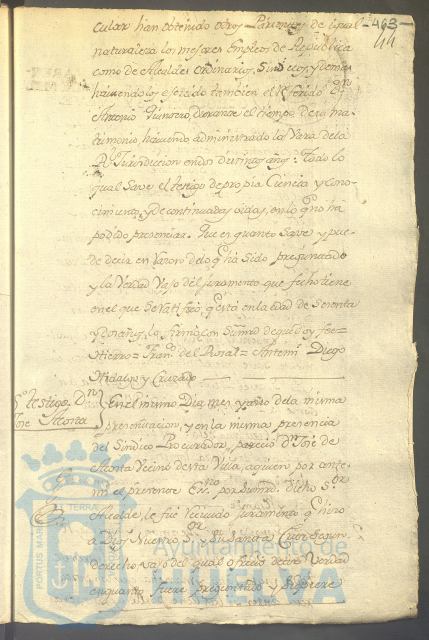 463
44
cular han obtenido otros Parientes de igual
naturaleza los mejores Empleos de Republica
como de Alcaldes Ordinarios, Sindicos y demas
haviendolos exercido tambien el referido Dn
Antonio Quintero, durante el tiempo de su ma-
trimonio, haviendo administrado la Vara de la
Rl Jurisdiccion en dos distintos años. Todo lo
qual save el testigo de propia Ciencia y Cono-
cimiento, y de continuadas oidas, en lo q no ha
podido presenciar. Que es quanto save y pue-
de decir en razon de lo q ha sido preguntado
y la Verdad vajo del juramento que fecho tiene
en el que se ratificó, q está en la edad de setenta
y dos años, lo firmó con su mrd de que doy fee=
Hierro= Franco del Rosal= Antemi Diego
Hidalgo y Cruzado
5o testigo Dn
Jose Acosta
En el mismo Dia, mes y año de la misma
presentacion, y en la misma presencia
del Sindico Procurador, parecio Dn Jose de
Acosta Vecino de esta Villa, a quien por ante
mi el presente Esno por su mrd dicho Sor
Alcalde, le fue recivido juramento q hizo
a Dios Nuestro Sor y su Santa Cruz segun
derecho, vajo del qual ofrecio decir Verdad
en quanto fuere preguntado y supiere
PORTUS MARIS
TERRAE
Ayuntamiento de
HUELVA